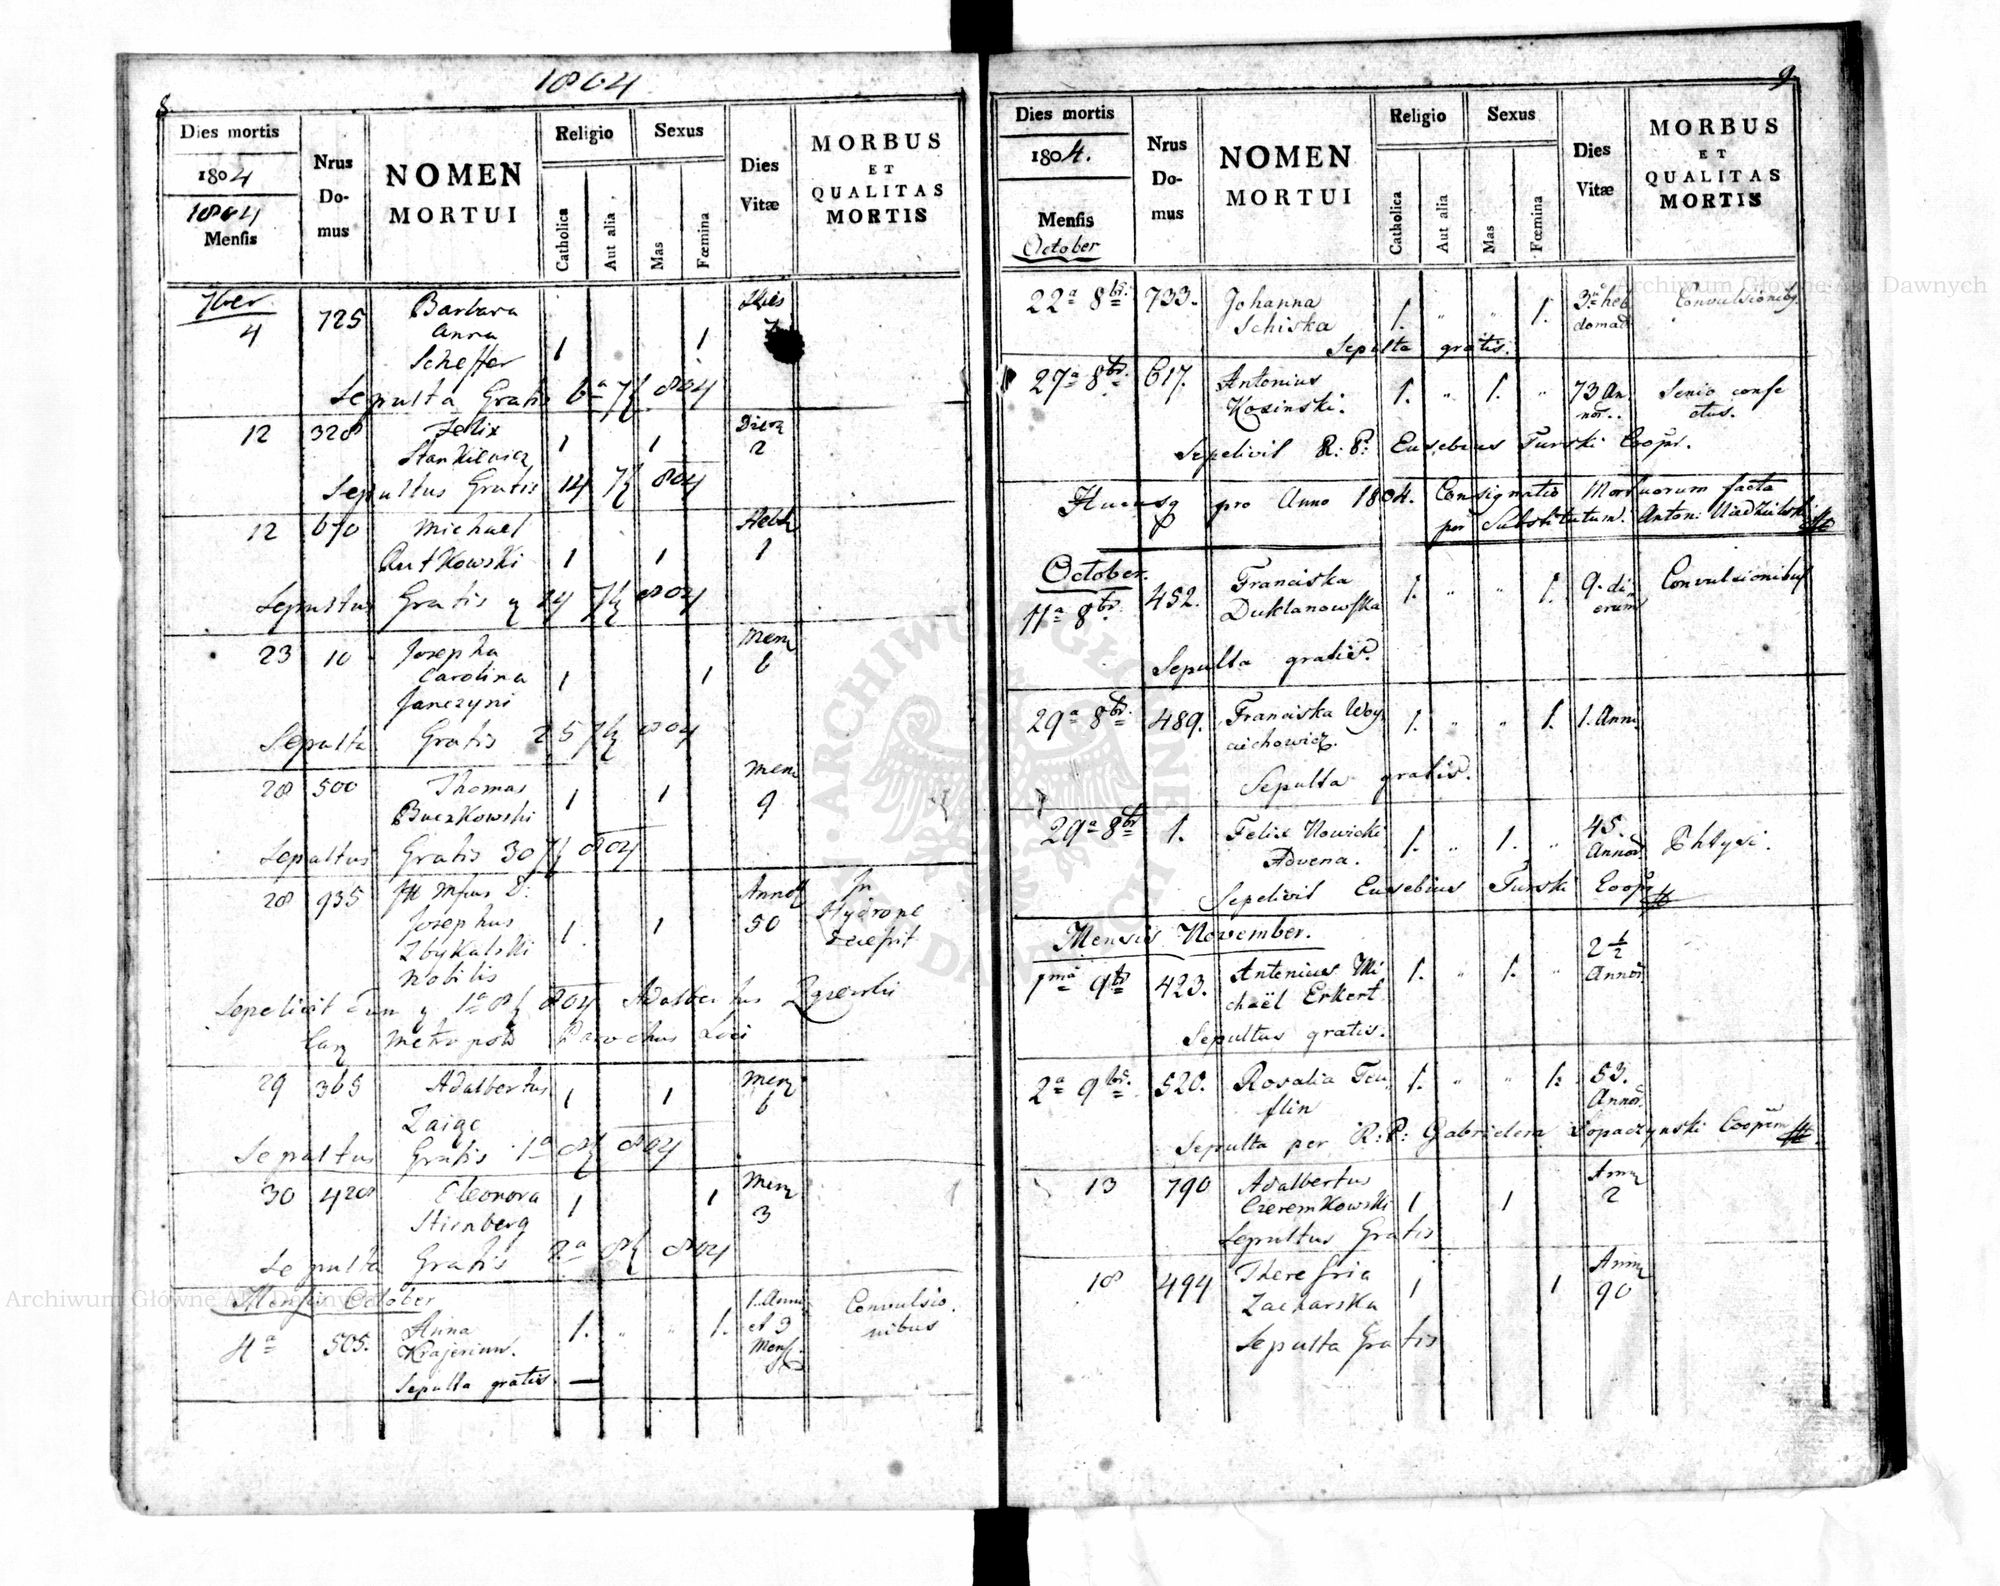 1804
8.
Dies mortis
1804
1804
Menſis
Nrus
Do-
mus
NOMEN
MORTUI
Religio
Catholica
Aut alia
Sexus
Mas
Fœmina
Dies
Vitæ
MORBUS
ET
QUALITAS
MORTIS
7ber
4 725 Barbara
Anna
Scheffer 1 1
Dies
Sepulta Gratis 6a 7b 804
12 320 Felix
Stankiewicz 1 1
2
Sepultus Gratis 14 7b 804
12 670 Michael
Rutkowski 1 1
Hebd
1
Sepultus Gratis 14 7b 804
23 10 Josepha
Carolina
Janczyni 1 1
Men
6
Sepulta Gratis 25 7b 804
28 500 Thomas
Buczkowski 1 1
Men
9
Sepultus Gratis 30 7b 804
28 935 D:
Josephus
Zbykalski
Nobilis 1 1
Annor
50
In
Hydrope
Sepelivit 1a 8b 804 Adalbertus
Can Metropol Parochus Loci
29 365 Adalbertus
Zaige 1 1
Men
6
Sepultus Gratis 1a 8b 804
30 428 Eleonora
Stirnberg 1 1
Men
3
Sepulta Gratis 2a 8b 804
Menſis October
4a 505. Anna
Krajerinn. 1. " " 1.
1. Anni
et 9
Menſ.
Convulsio
nibus
Sepulta gratis
9.
Dies mortis
1804.
Menſis
October
Nrus
Do-
mus
NOMEN
MORTUI
Religio
Catholica
Aut alia
Sexus
Mas
Fœmina
Dies
Vitæ
MORBUS
ET
QUALITAS
MORTIS
22a 8br. 733. Johanna
Schiska 1. " " 1.
3. heb
domad
Convulsionib.
Sepulta gratis.
27a 8br. 617. Antonius
Kozinski. 1. " 1. "
73 An
nor.
Senio confe
ctus.
Sepelivit R: P: Eusebius Turski Coopr.
Hucusq pro Anno 1804. Consignatio Mortuorum facta
per Substitutum. Antoni
October.
11a 8br. 452. Franciska
Duklanowſka 1. " " 1.
9. di
erum
Convulsionibus
Sepulta gratis.
29a 8br. 489. Franciska Woy
ciechowicz. 1. " " 1. 1. Anni.
Sepulta gratis.
29a 8br 1. Felix Nowicki
Advena. 1. " 1. "
45.
Annor.
Phtysi.
Sepelivit Eusebius Turski Coopr
Mensis November.
1ma 9br 423. Antonius Mi
chaël Erkert 1. " 1. "
2 1/2
Annor.
Sepultus gratis.
2a 9br. 520. Rosalia Teu
flin 1. " " 1.
53.
Annor.
Sepulta per R: P: Gabrielem Lopaczynski Coopem
13 790 Adalbertus
Czeremkowski 1 1
Ann
2
Sepultus Gratis
18 494 Thereſria
Zacharska 1 1
Ann
90
Sepulta Gratis
Archiwum Główne Akt Dawnych
Archiwum Główne Akt Dawnych
ARCHIWUM GŁÓWNE AKT DAWNYCH